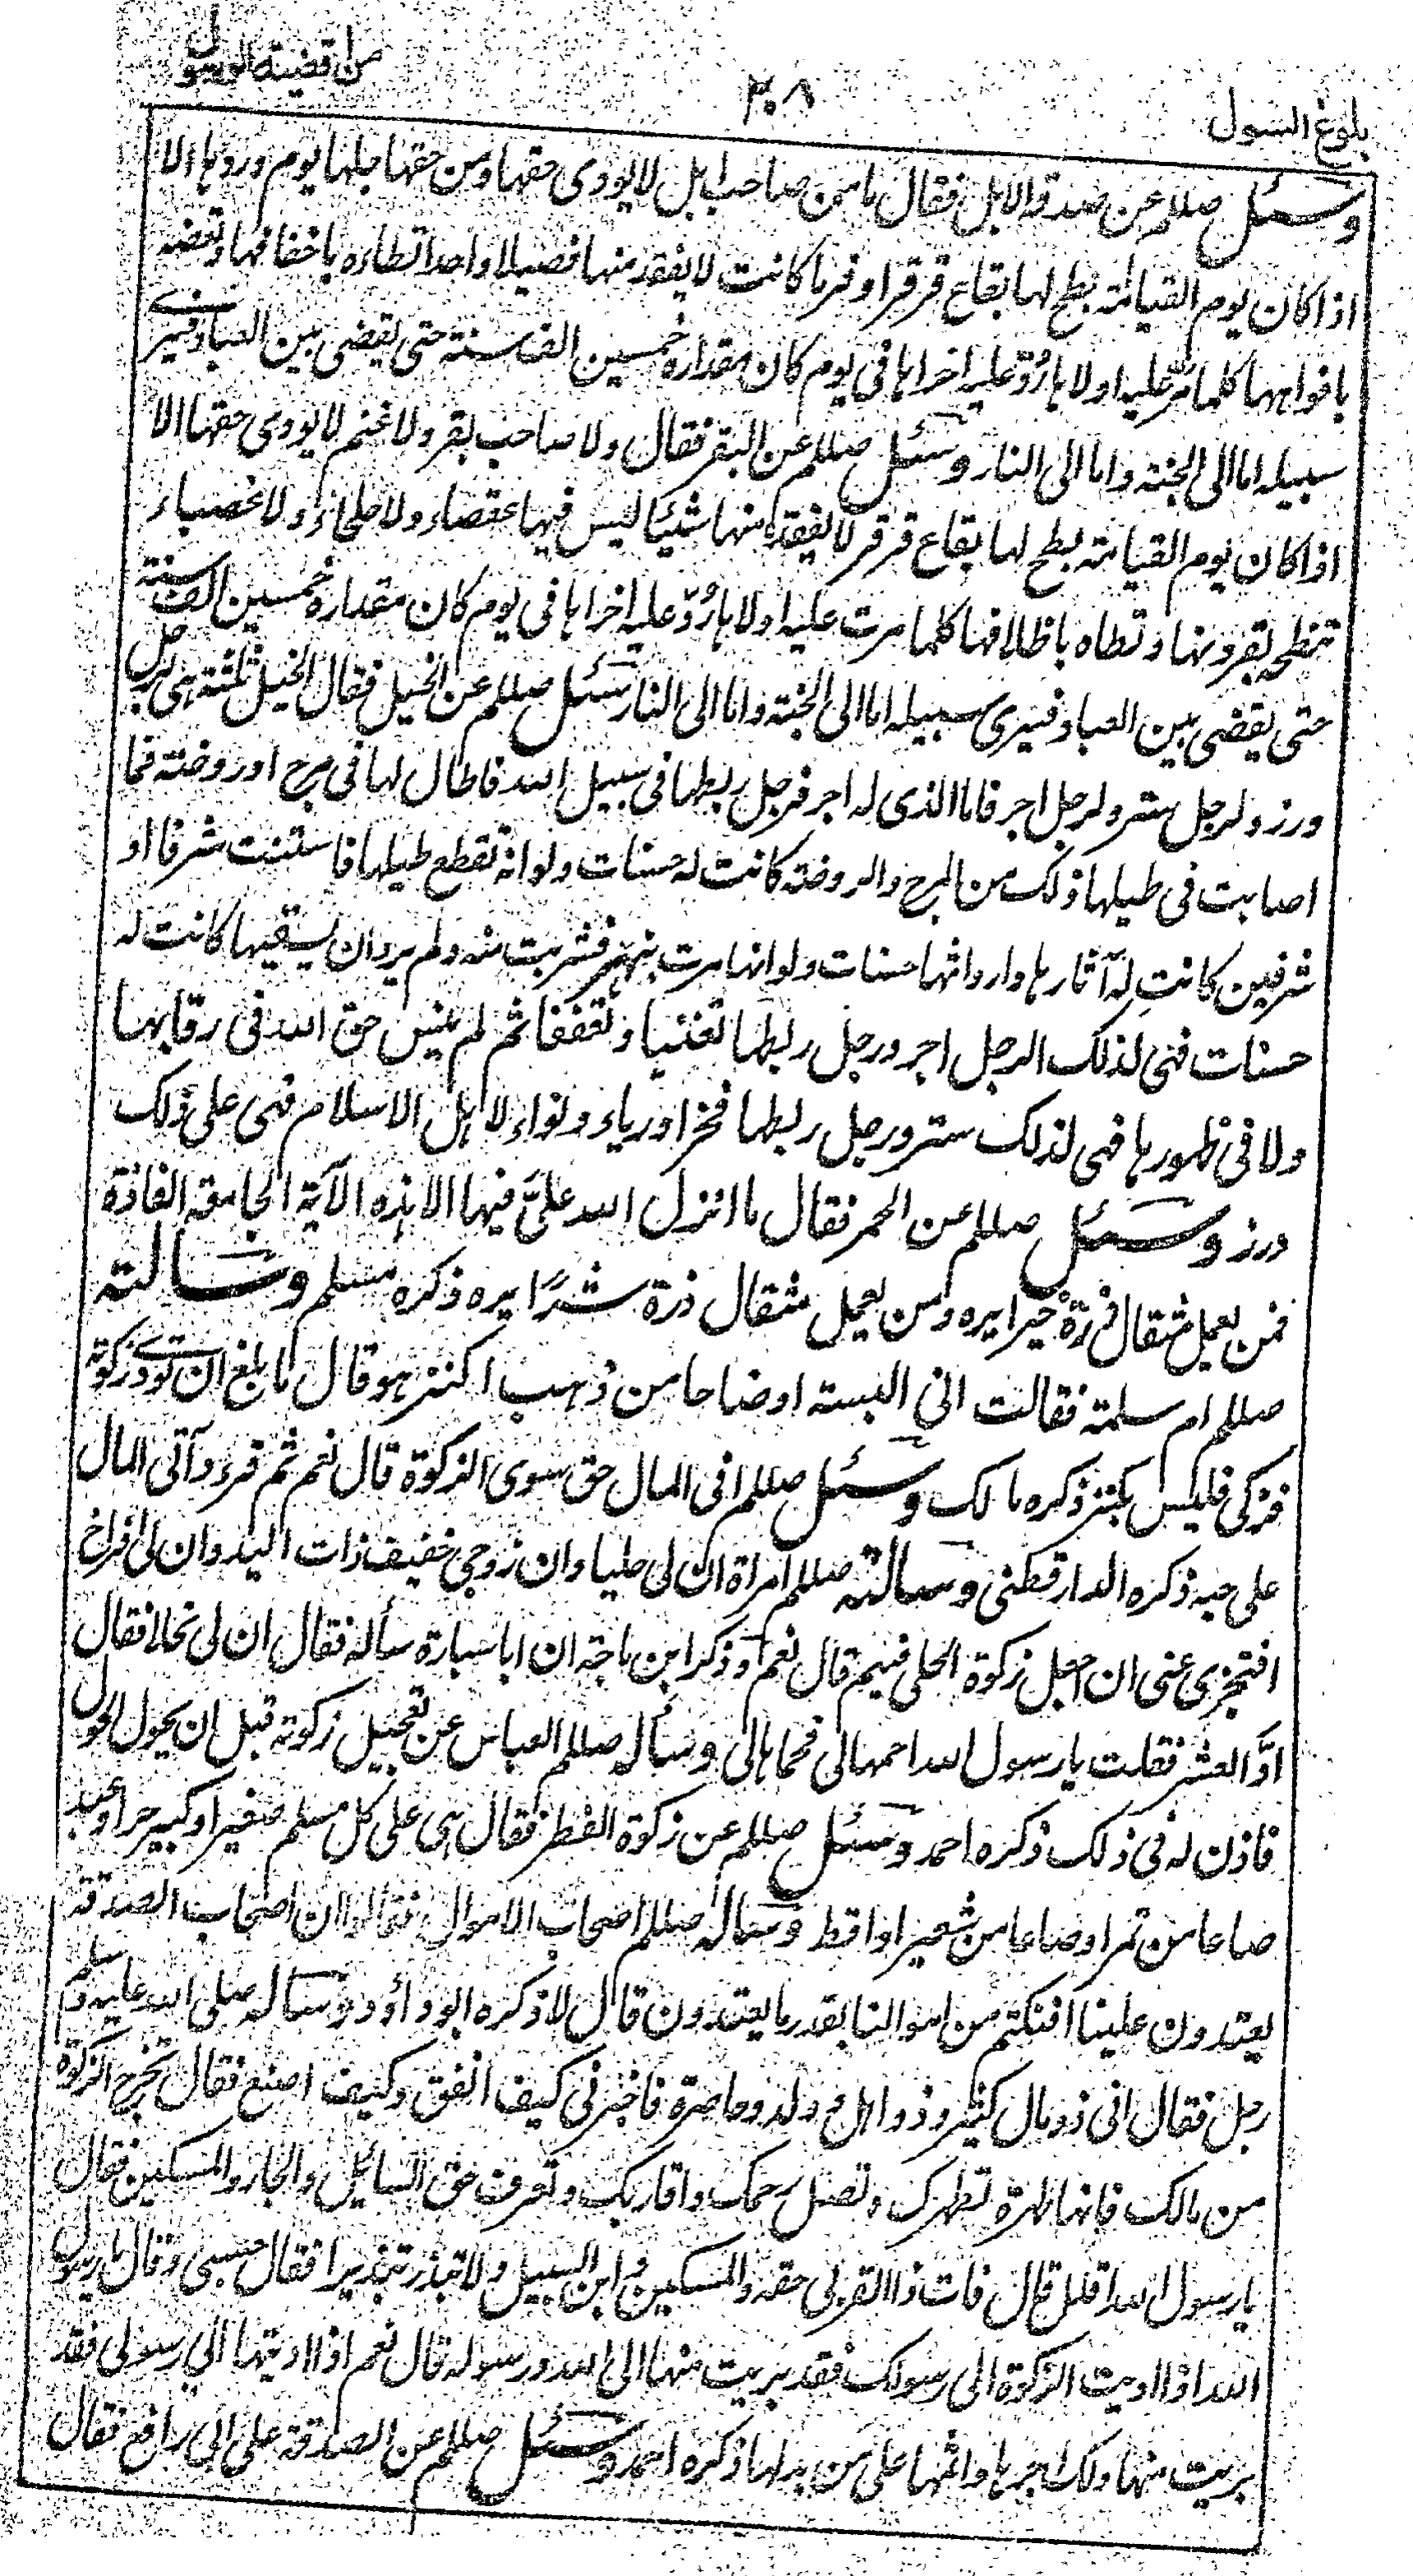 بلوغ السول
٣٠٨
من اقضية الرسول
وسئل صللم عن صدقة الابل فقال ما من صاحب ابل لا يودى حقها ومن حقها حلبها يوم وردها الا
اذا كان يوم القيامة بطح لها بقاع قرقر او فر ما كانت لا يفقد منها فصيلا واحدا تطاءه باخفافها وتعضه
بافواهها كلما مر عليه اولاها رد عليه اخراها فى يوم كان مقداره خمسين الف سنة حتى يقضى بين العباد فيرى
سبيله اما الى الجنة واما الى النار وسئل صللم عن البقر فقال ولا صاحب بقر ولا غنم لا يودى حقها الا
اذا كان يوم القيامة بطح لها بقاع قرقر لا يفقد منها شيئا ليس فيها عقصاء ولا جلحاء ولا عضباء
تنطحه بقرونها وتطاه باظلافها كلما مرت عليه اولاها رد عليه اخراها فى يوم كان مقداره خمسين الف سنة
حتى يقضى بين العباد فيرى سبيله اما الى الجنة واما الى النار وسئل صللم عن الخيل فقال الخيل ثلثة هى لرجل
وزر ولرجل ستر ولرجل اجر فاما الذى له اجر فرجل ربطها فى سبيل الله فاطال لها فى مرج او روضة فما
اصابت فى طيلها ذلك من المرج والروضة كانت له حسنات ولو انه تقطع طيلها فاستنت شرفا او
شرفين كانت له آثارها وارواثها حسنات ولو انها مرت بنهر فشربت منه ولم يرد ان يسقيها كانت له
حسنات فهى لذلك الرجل اجر ورجل ربطها تغنيا وتعففا ثم لم ينس حق الله فى رقابها
ولا فى ظهورها فهى لذلك ستر ورجل ربطها فخرا ورياء ونواء لاهل الاسلام فهى على ذلك
وزر وسئل صللم عن الحمر فقال ما انزل الله علىّ فيها الا هذه الآية الجامعة الفاذة
فمن يعمل مثقال ذرة خيرا يره ومن يعمل مثقال ذرة شرًا يره ذكره مسلم وسالته
صللم ام سلمة فقالت انى البسة اوضاحا من ذهب اكنز هو قال ما بلغ ان تودى زكوته
فزكى فليس بكنز ذكره مالك وسئل صللم افى المال حق سوى الزكوة قال نعم ثم قرء وآتى المال
على حبه ذكره الدارقطنى وسالته صللم امراة ان لى حليا وان زوجى خفيف ذات اليد وان لى افراخ
افتجزى عنى ان اجعل زكوة الحلى فيهم قال نعم وذكر ابن ماجة ان ابا سيارة سأله فقال ان لى نحلا فقال
ادّ العشر فقلت يا رسول الله احمها لى فحماها لى وسأل صللم العباس عن تعجيل زكوته قبل ان يحول الحول
فاذن له فى ذلك ذكره احمد وسئل صللم عن زكوة الفطر فقال هى على كل مسلم صغيرا وكبير حر او عبد
صاعا من تمر او صاعا من شعير او اقط وساله صللم اصحاب الاموال فقالوا ان اصحاب الصدقة
يعتدون علينا افنكتم من اموالنا بقدر ما يعتدون قال لا ذكره ابو داؤد وساله صلى الله عليه وسلم
رجل فقال انى ذو مال كثير وذو اهل وولد وحاصرة فاخبرنى كيف انفق وكيف اصنع فقال تخرج الزكوة
من مالك فانها طهرة تطهرك وتصل رحمك واقاربك وتعرف حق السائل والجار والمسكين فقال
يا رسول الله اقلل قال فات ذا القربى حقه والمسكين وابن السبيل ولا تبذر تبذيرا فقال حسبى وقال يا رسول
الله اذا اديت الزكوة الى رسولك فقد بريت منها الى الله ورسوله قال نعم اذا اديتها الى رسولى فقد
بريت منها ولك اجرها واثمها على من بدلها ذكره احمد وسئل صللم عن الصدقة على ابى رافع فقال